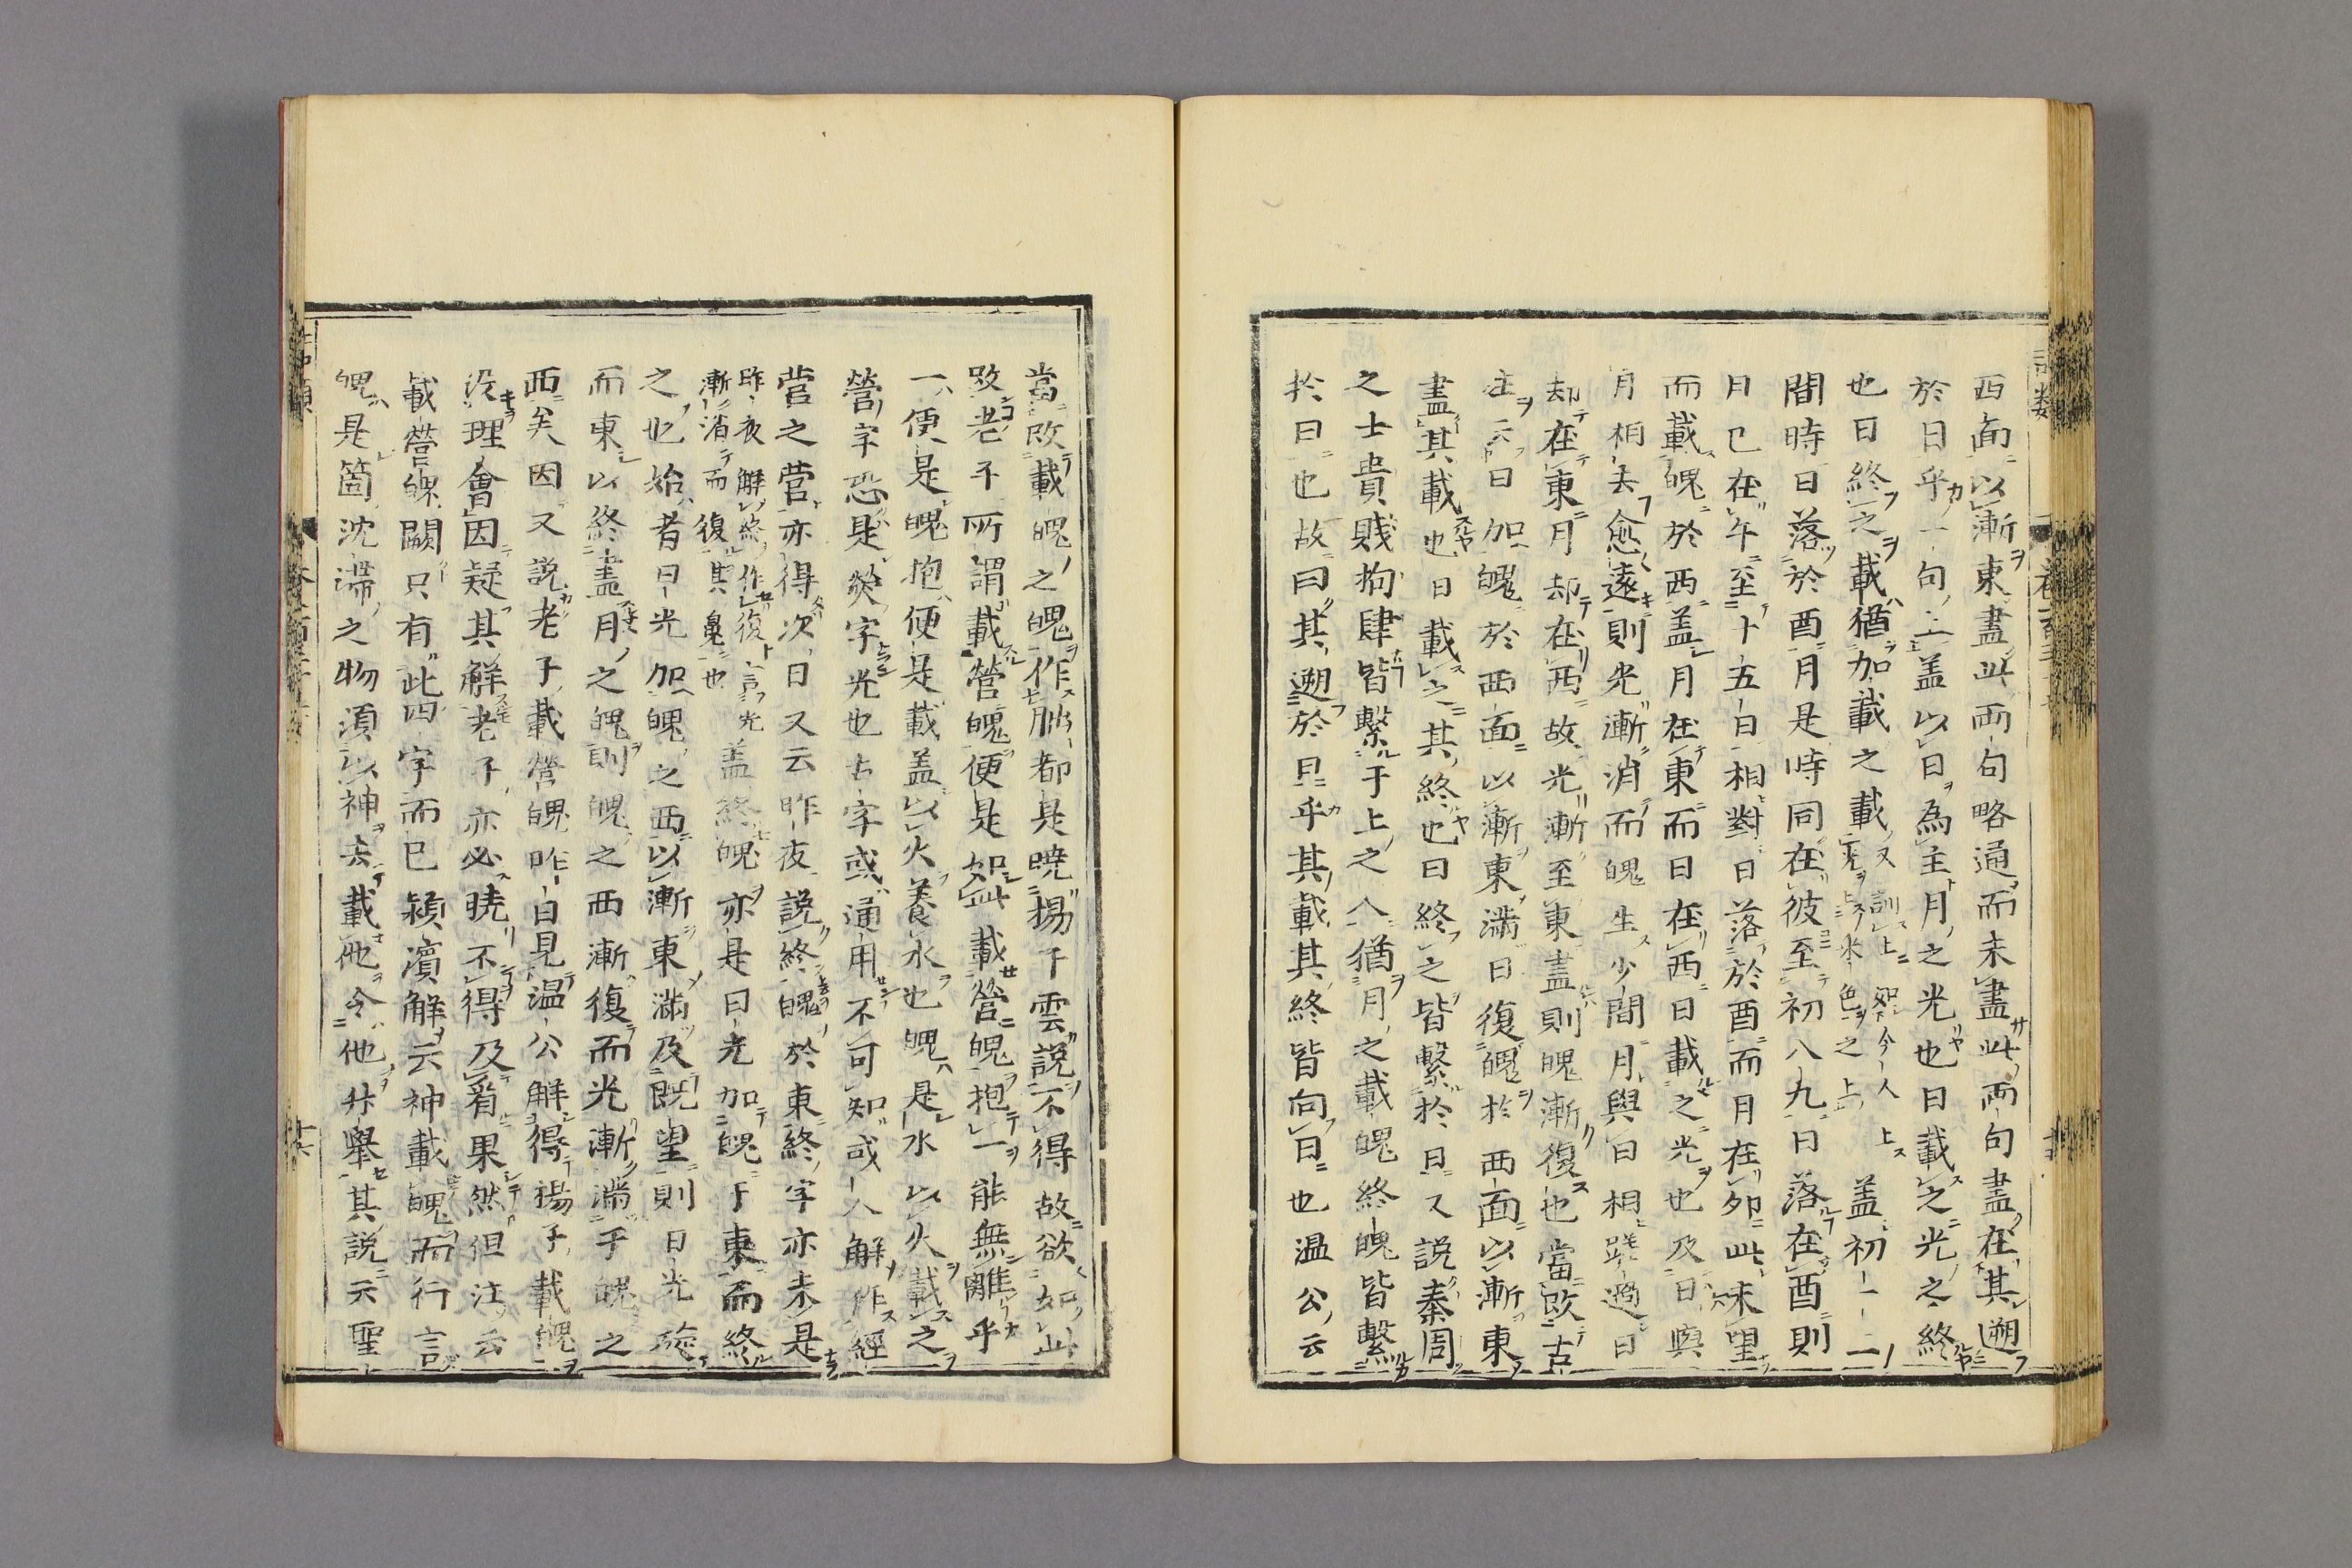 西面以漸東盡此兩句略通而未盡此兩句盡在其遡
於日乎一句上盖以日為主月之光也日載之光之終
也日終之載猶加載之載
又訓上如今人上
光上采色之上
盖初一二
間時日落於酉月是時同在彼至初八九日落在酉則
月已在午至十五日相對日落於酉而月在卯此未望
而載魄於西盖月在東而日在西日載之光也及日與
月相去愈遠則光漸消而魄生少間月與日相蹉過日
却在東月却在西故光漸至東盡則魄漸復也當改古
注云日加魄於西面以漸東滿日復魄於西面以漸東
盡其載也日載之其終也日終之皆繫於日又説秦周
之士貴賤拘肆皆繫于上之人猶月之載魄終魄皆繫
於日也故曰其遡於日乎其載其終皆向日也温公云
當改載魄之魄作朏都是曉揚子雲説不得故欲如此
改老子所謂載營魄便是如此載營魄抱一能無離乎
一便是魄抱便是載盖以火養水也魄是水以火載之
營字恐是熒字光也古字或通用不可知或人解作經
営之営亦得次日又云昨夜説終魄於東終字亦未是
昨夜解終作復言光
漸消而復其魄也
盖終魄亦是日光加魄于東而終
之也始者日光加魄之西以漸東滿及既望則日光旋
而東以終盡月之魄則魄之西漸復而光漸滿于魄之
西矣因又説老子載營魄昨日見温公解得揚子載魄
没理會因疑其解老子亦必曉不得及看果然但注云
載營魄闕只有此四字而已潁濵解云神載魄而行言
魄是箇沈滯之物須以神去載他令他升舉其説云聖